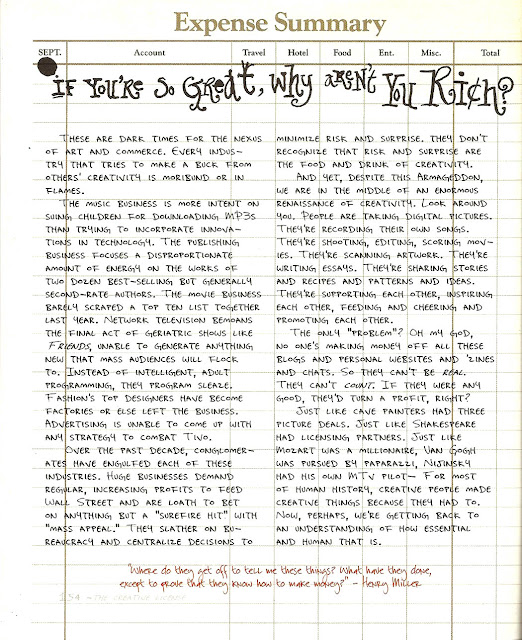 Expense Summary
SEPT. Account Travel Hotel Food Ent. Misc. Total
IF YOU'RE SO GREAT, WHY AREN'T YOU RICH?
THESE ARE DARK TIMES FOR THE NEXUS
OF ART AND COMMERCE. EVERY INDUS-
TRY THAT TRIES TO MAKE A BUCK FROM
OTHERS' CREATIVITY IS MORIBUND OR IN
FLAMES.
THE MUSIC BUSINESS IS MORE INTENT ON
SUING CHILDREN FOR DOWNLOADING MP3S
THAN TRYING TO INCORPORATE INNOVA-
TIONS IN TECHNOLOGY. THE PUBLISHING
BUSINESS FOCUSES A DISPROPORTIONATE
AMOUNT OF ENERGY ON THE WORKS OF
TWO DOZEN BEST-SELLING BUT GENERALLY
SECOND-RATE AUTHORS. THE MOVIE BUSINESS
BARELY SCRAPED A TOP TEN LIST TOGETHER
LAST YEAR. NETWORK TELEVISION BEMOANS
THE FINAL ACT OF GERIATRIC SHOWS LIKE
FRIENDS, UNABLE TO GENERATE ANYTHING
NEW THAT MASS AUDIENCES WILL FLOCK
TO. INSTEAD OF INTELLIGENT, ADULT
PROGRAMMING, THEY PROGRAM SLEAZE.
FASHION'S TOP DESIGNERS HAVE BECOME
FACTORIES OR ELSE LEFT THE BUSINESS.
ADVERTISING IS UNABLE TO COME UP WITH
ANY STRATEGY TO COMBAT TIVO.
OVER THE PAST DECADE, CONGLOMER-
ATES HAVE ENGULFED EACH OF THESE
INDUSTRIES. HUGE BUSINESSES DEMAND
REGULAR, INCREASING PROFITS TO FEED
WALL STREET AND ARE LOATH TO BET
ON ANYTHING BUT A "SUREFIRE HIT" WITH
"MASS APPEAL." THEY SLATHER ON BU-
REAUCRACY AND CENTRALIZE DECISIONS TO
MINIMIZE RISK AND SURPRISE. THEY DON'T
RECOGNIZE THAT RISK AND SURPRISE ARE
THE FOOD AND DRINK OF CREATIVITY.
AND YET, DESPITE THIS ARMAGEDDON,
WE ARE IN THE MIDDLE OF AN ENORMOUS
RENAISSANCE OF CREATIVITY. LOOK AROUND
YOU. PEOPLE ARE TAKING DIGITAL PICTURES.
THEY'RE RECORDING THEIR OWN SONGS.
THEY'RE SHOOTING, EDITING, SCORING MOV-
IES. THEY'RE SCANNING ARTWORK. THEY'RE
WRITING ESSAYS. THEY'RE SHARING STORIES
AND RECIPES AND PATTERNS AND IDEAS.
THEY'RE SUPPORTING EACH OTHER, INSPIRING
EACH OTHER, FEEDING AND CHEERING AND
PROMOTING EACH OTHER.
THE ONLY "PROBLEM"? OH MY GOD,
NO ONE'S MAKING MONEY OFF ALL THESE
BLOGS AND PERSONAL WEBSITES AND 'ZINES
AND CHATS. SO THEY CAN'T BE REAL.
THEY CAN'T COUNT. IF THEY WERE ANY
GOOD, THEY'D TURN A PROFIT, RIGHT?
JUST LIKE CAVE PAINTERS HAD THREE
PICTURE DEALS. JUST LIKE SHAKESPEARE
HAD LICENSING PARTNERS. JUST LIKE
MOZART WAS A MILLIONAIRE, VAN GOGH
WAS PURSUED BY PAPARAZZI, NIJINSKY
HAD HIS OWN MTV PILOT— FOR MOST
OF HUMAN HISTORY, CREATIVE PEOPLE MADE
CREATIVE THINGS BECAUSE THEY HAD TO.
NOW, PERHAPS, WE'RE GETTING BACK TO
AN UNDERSTANDING OF HOW ESSENTIAL
AND HUMAN THAT IS.
"Where do they get off to tell me these things? What have they done,
except to prove that they know how to make money?" - Henry Miller
154 - THE CREATIVE LICENSE